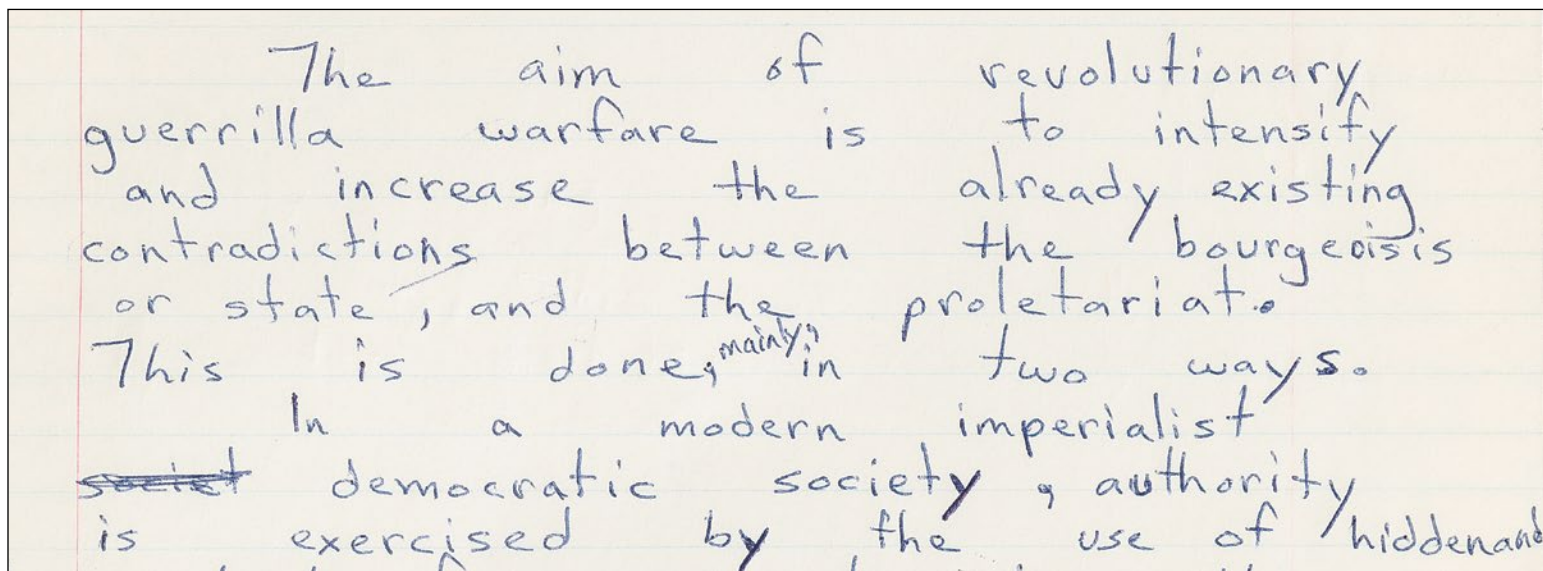 The aim of revolutionary
guerrilla warfare is to intensify
and increase the already existing
contradictions between the bourgeoisis
or state, and the proletariat.
This is done, mainly, in two ways.
In a modern imperialist
societ democratic society, authority
is exercised by the use of hiddenand